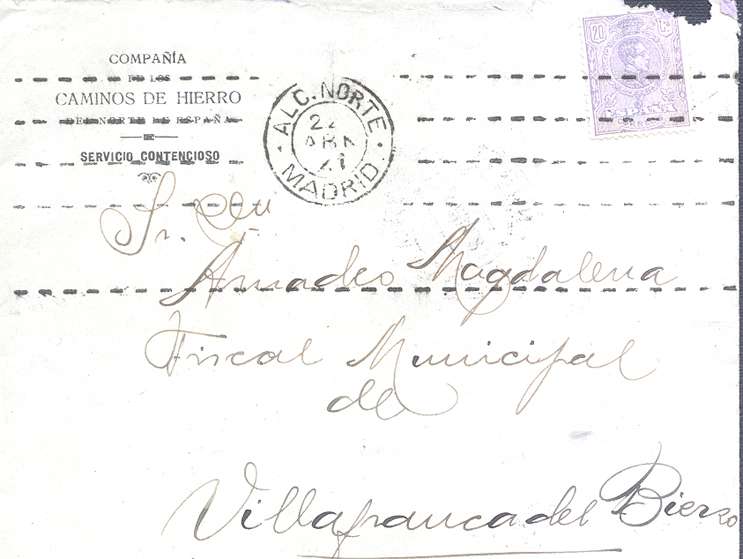 COMPAÑÍA
DE LOS
CAMINOS DE HIERRO
DEL NORTE DE ESPAÑA
SERVICIO CONTENCIOSO
ALC. NORTE
MADRID
20
Sr. Dn
Amadeo Magdalena
Fiscal Municipal
de
Villafranca del Bierzo